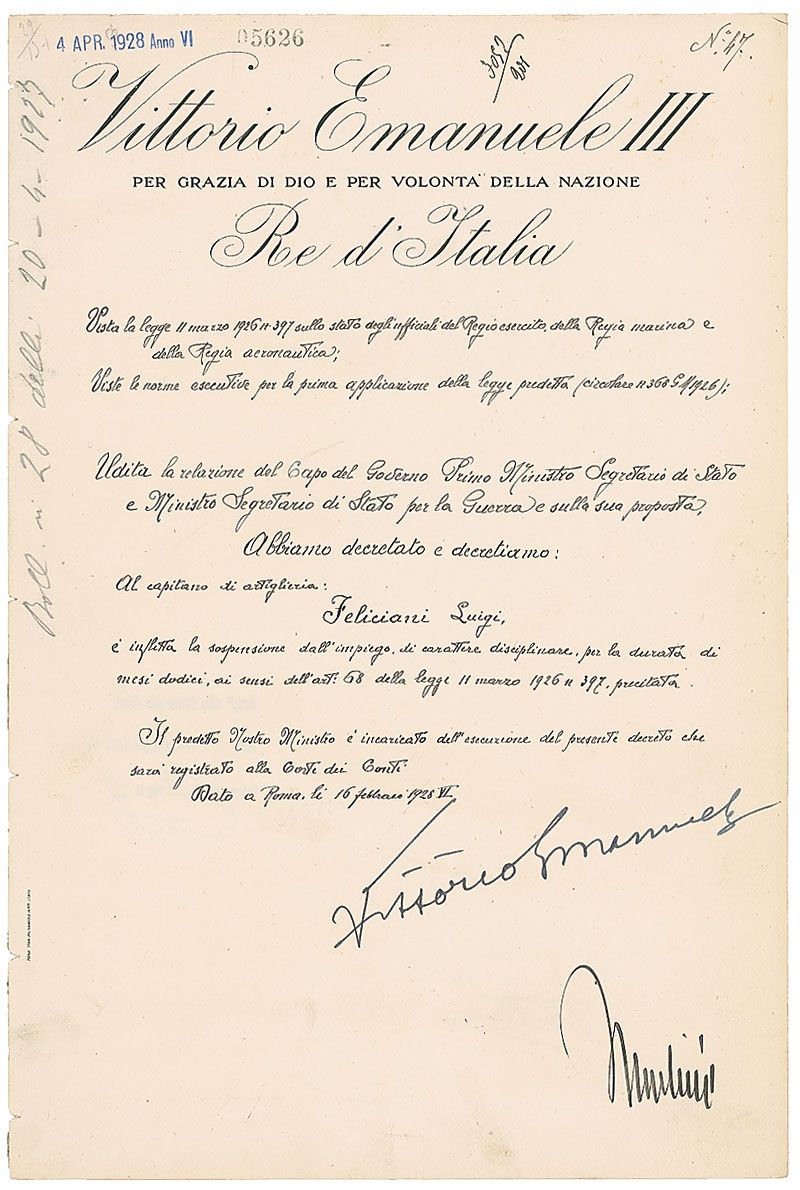 4 APR. 1928 Anno VI
05626
3052
201
N.° 47.
Vittorio Emanuele III
PER GRAZIA DI DIO E PER VOLONTA DELLA NAZIONE
Re d'Italia
Vista la legge 11 marzo 1926 n. 397 sullo stato degli ufficiali del Regio esercito, della Regia marina e
della Regia aeronautica;
Viste le norme esecutive per la prima applicazione della legge predetta (circolare n 368 G.M 1926);
Udita la relazione del Capo del Governo Primo Ministro Segretario di Stato
e Ministro Segretario di Stato per la Guerra e sulla sua proposta,
Abbiamo decretato e decretiamo:
Al capitano di artiglieria:
Feliciani Luigi,
è inflitta la sospensione dall'impiego, di carattere disciplinare, per la durata di
mesi dodici, ai sensi dell'art. 68 della legge 11 marzo 1926 n 397, precitata.
Il predetto Nostro Ministro è incaricato dell'esecuzione del presente decreto che
sarà registrato alla Corte dei Conti
Dato a Roma, lì 16 febbraio 1928 VI
Vittorio Emanuele
Mussolini
Boll. n 28 delli 20-4-1928